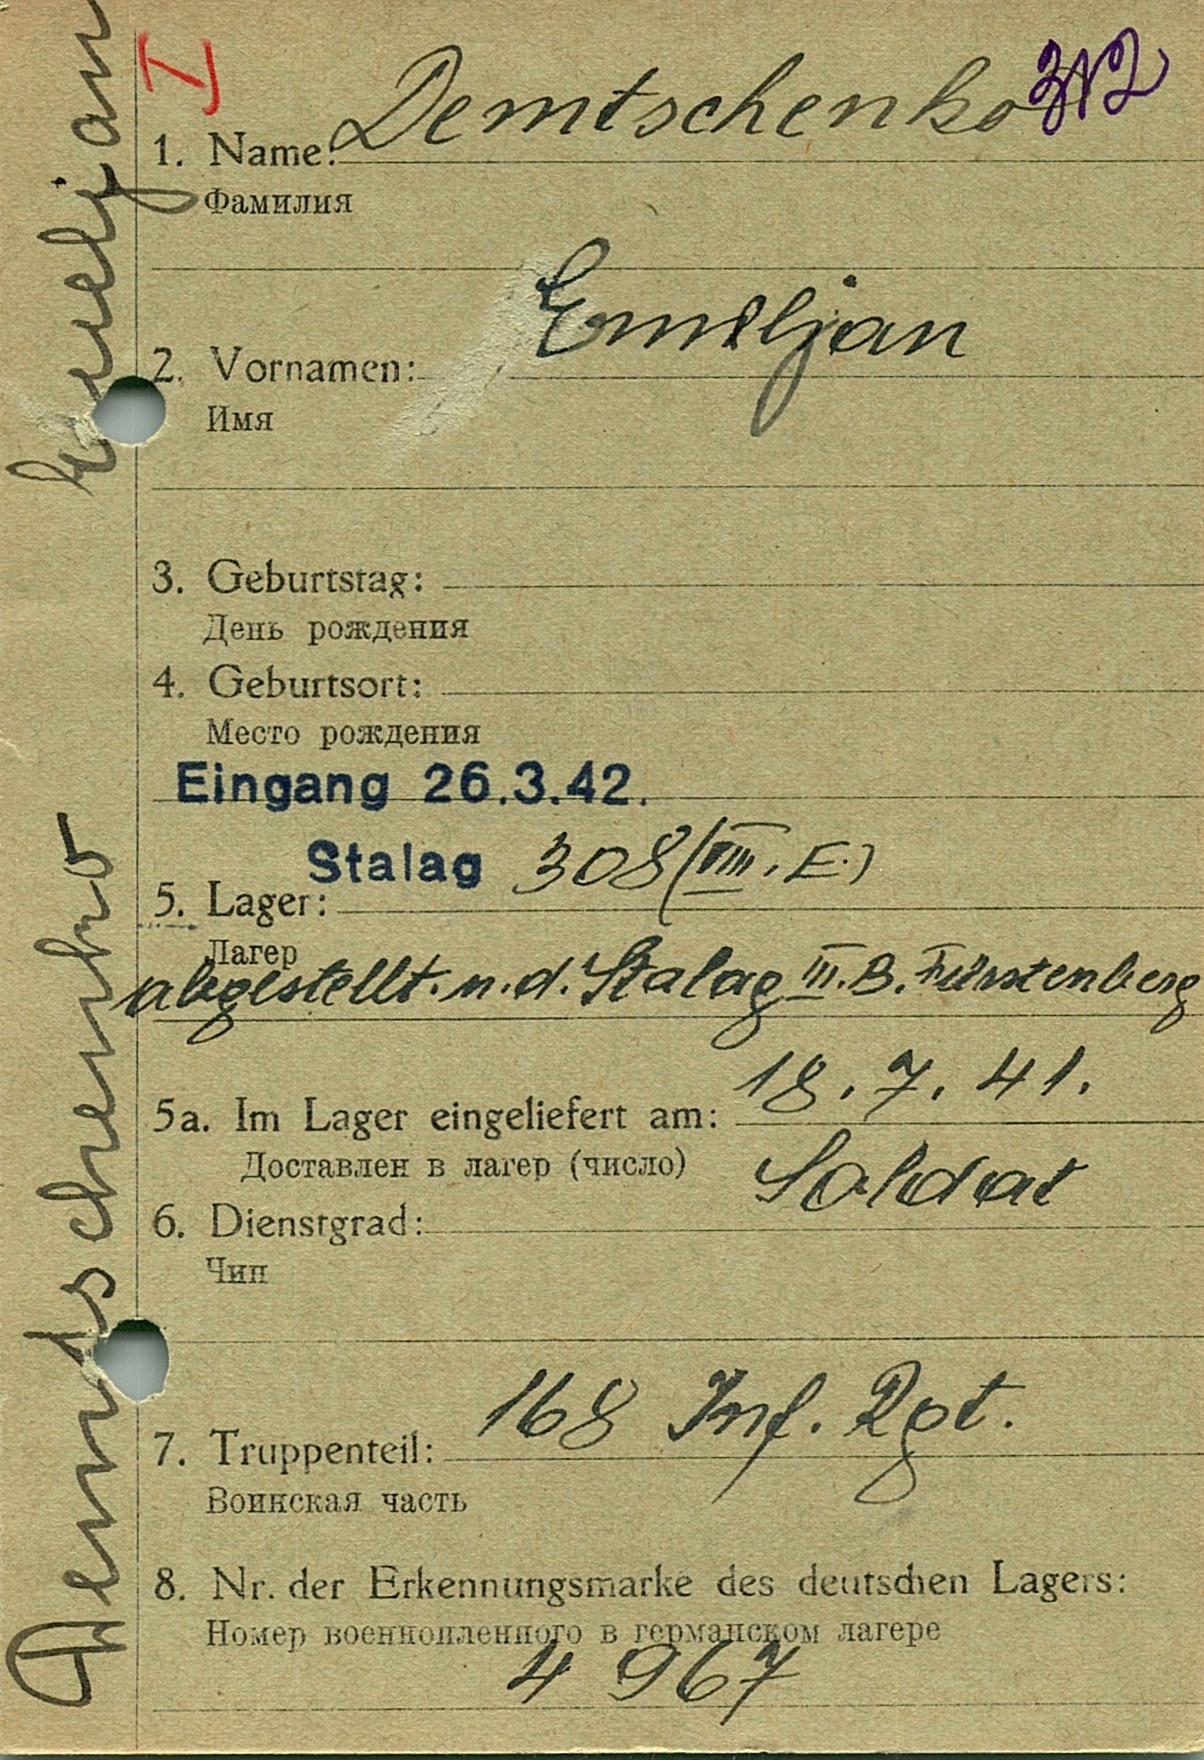 I
Demtschenko 312
1. Name:
Фамилия
Emiljan
2. Vornamen:
Имя
3. Geburtstag:
День рождения
4. Geburtsort:
Место рождения
Eingang 26.3.42.
Stalag 308 (VIII. E.)
5. Lager:
Лагер
abgestellt. n. d. Stalag III. B. Fürstenberg
5a. Im Lager eingeliefert am: 18. 7. 41.
Доставлен в лагер (число)
6. Dienstgrad: Soldat
Чин
7. Truppenteil: 168 Inf. Rgt.
Воинская часть
8. Nr. der Erkennungsmarke des deutschen Lagers:
Номер военнопленного в германском лагере
4 967
Demtschenko Emeljan